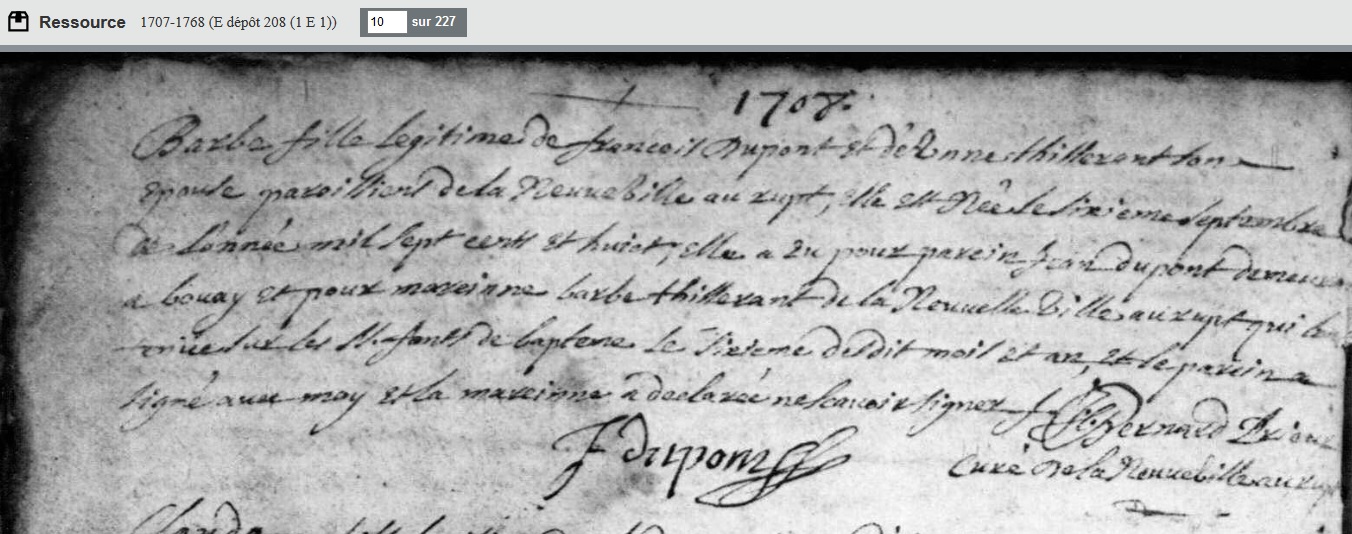 Ressource 1707-1768 (E dépôt 208 (1 E 1)) 10 sur 227
1708.
Barbe fille legitime de francois Dupont et d'Anne thillerant son
epouse paroissiens de la Neuveville au rupt, elle est Née le sixieme septembre
de l'année mil sept cents et huict, elle a eu pour parein Jean dupont demeur
a bouay et pour mareinne barbe thillerant de la Neuvelle ville au rupt qui l'ont
tenüe sur les Ss. fonts de bapteme le sixieme desdit mois et an, et le parein a
signé avec moy et la mareinne a declarée ne scavoir signer f. Bernard Prieur
J dupont
Curé De la Neuveville au rupt